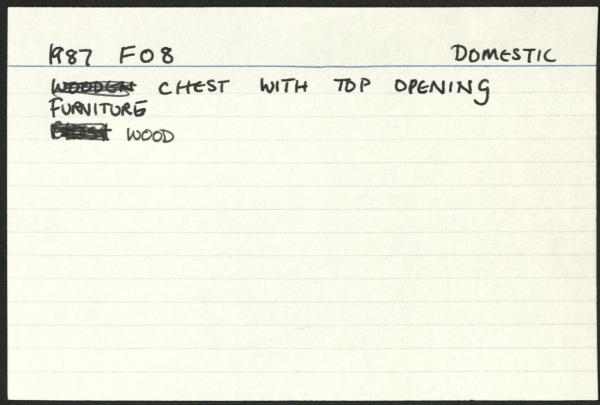 1987 F08 DOMESTIC
WOODEN CHEST WITH TOP OPENING
FURNITURE
WOOD